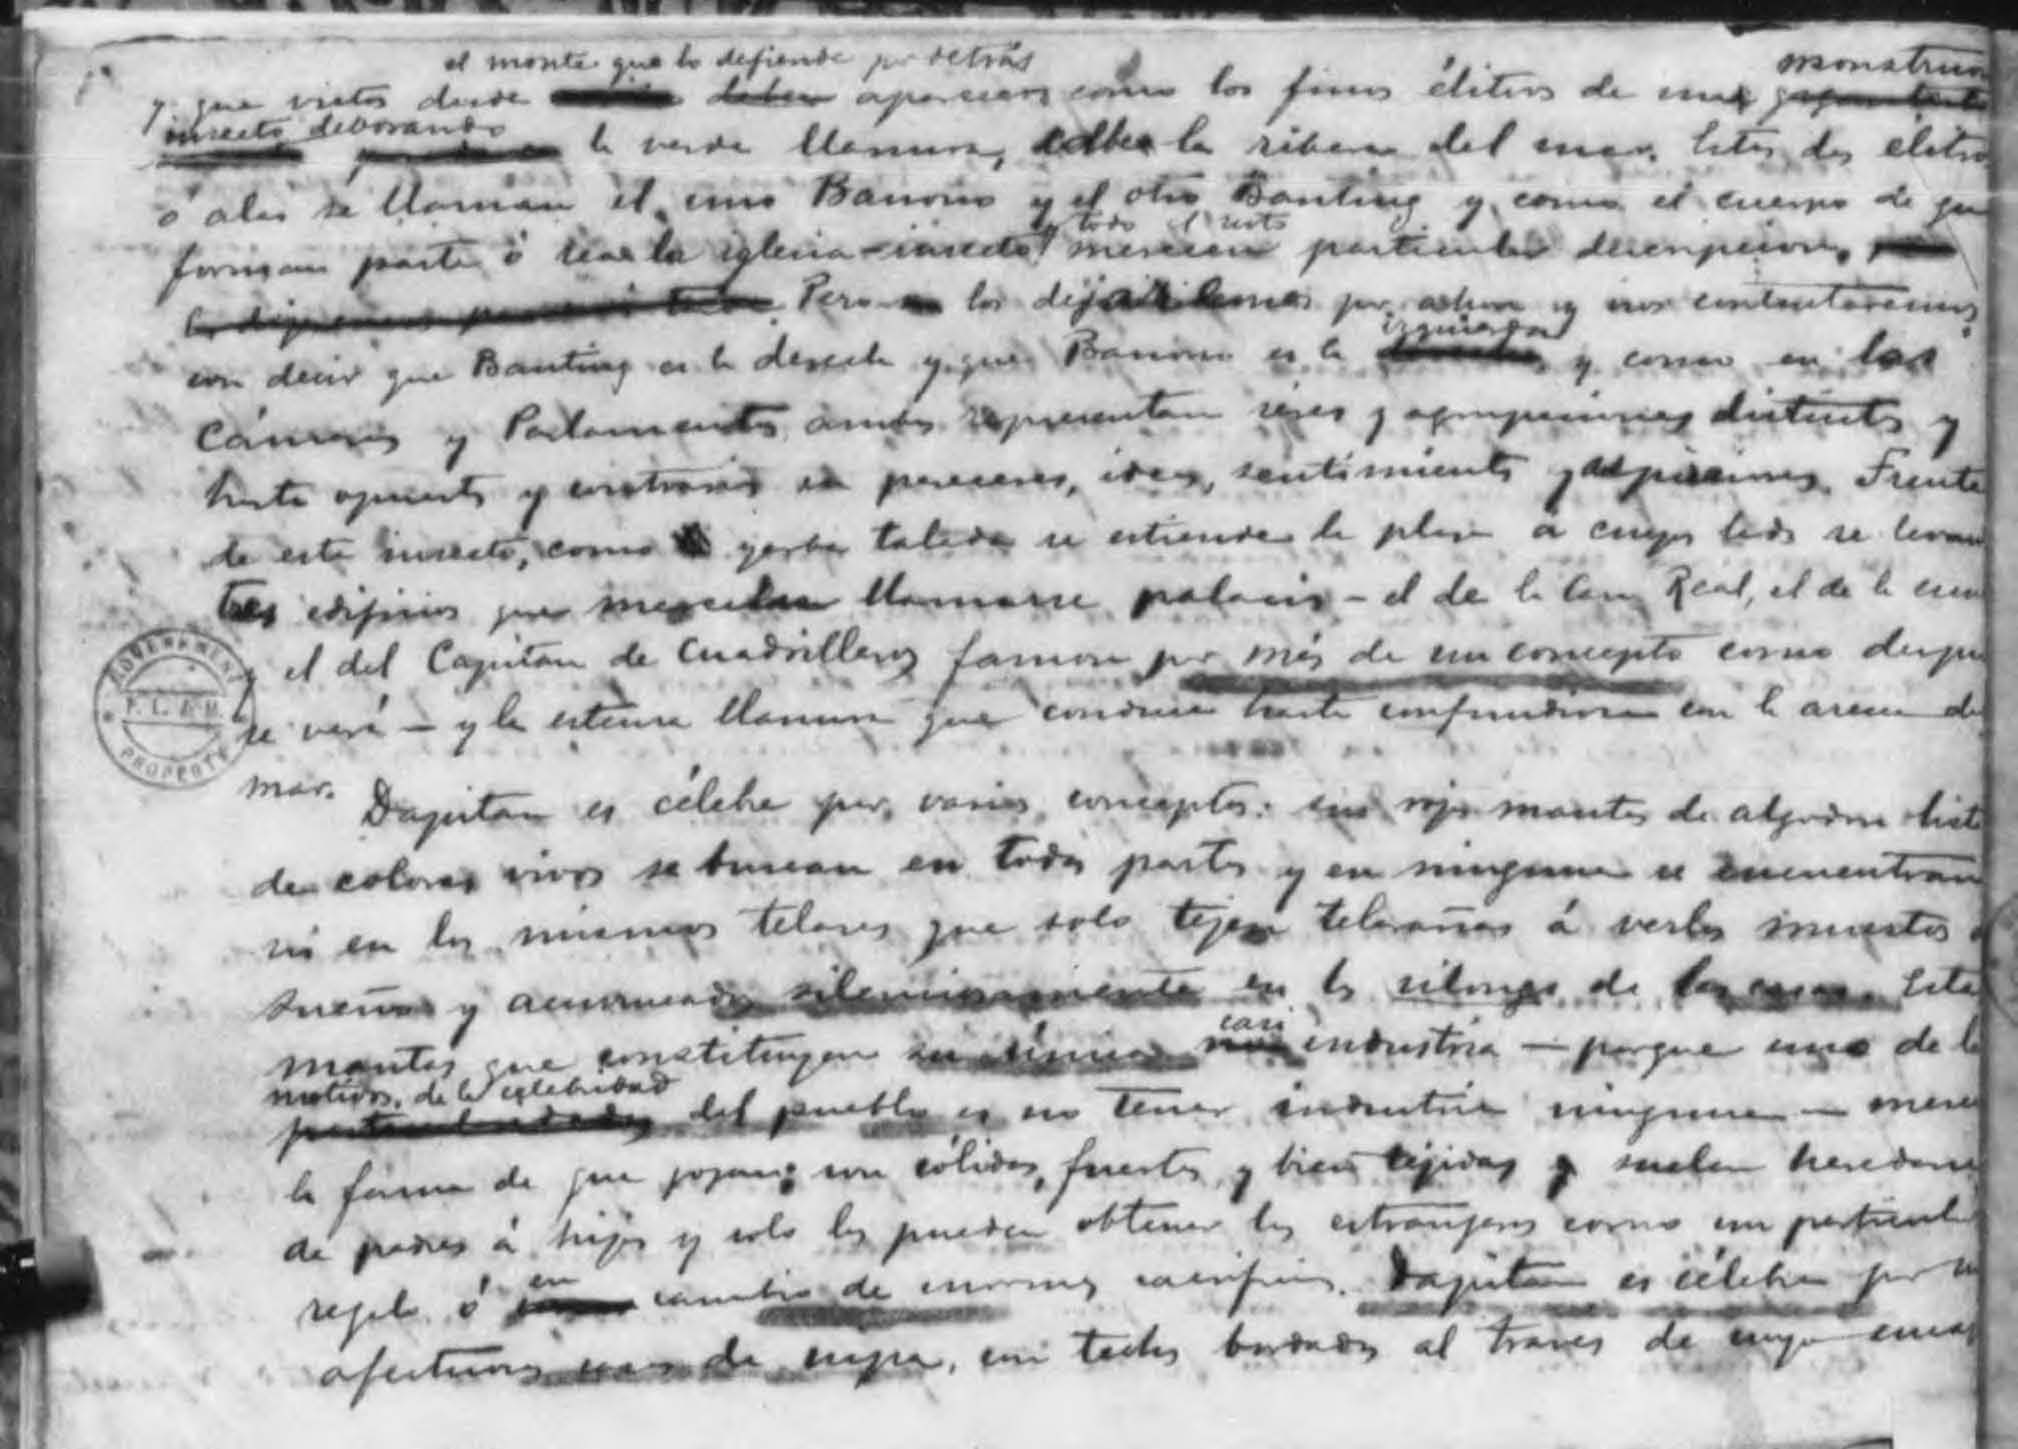 el monte que lo defiende por detrás
monstruo
y que vistos desde aparecen como los finos élitros de un
insecto devorando la verde llanura, la ribera del mar. Estos dos élitros
ó alas se llaman el uno Banono y el otro Banting y como el cuerpo de que
y todo el resto
forman parte ó sea la iglesia-insecto merecen particular descripcion,
Pero los dejaremos por ahora y nos contentaremos
izquierda
con decir que Banting es la derecha y que Banono es la y como en las
Cámaras y Parlamentos ambos representan seres y agrupaciones distintas y
hasta opuestas y contrarias en pareceres, ideas, sentimientos y aspiraciones. Frente
de este insecto, como yerba talada se estiende la plaza á cuyos lados se levan
tres edificios que merecen llamarse palacios - el de la Casa Real, el de la escu
y el del Capitan de Cuadrilleros famoso por más de un concepto como despu
se verá - y la estensa llanura que conduce hasta confundirse con la arena del
mar.
Dapitan es célebre por varios conceptos: sus rojas mantas de algodon
de colores vivos se buscan en todas partes y en ninguna se encuentran
ni en los mismos telares que solo tejen telarañas á verlos muertos
sueño y silenciosamente en los silongs de las casas. Estas
casi
mantas que constituyen su única industria - porque uno de los
motivos de la celebridad
del pueblo es no tener industria ninguna - merecen
la fama de que gozan; son sólidas, fuertes y bien tejidas y suelen heredarse
de padres á hijos y solo las pueden obtener los estrangeros como un particular
en
regalo ó cambio de enormes sacrificios. Dapitan es célebre por sus
casas de nipa, con techos bordados al traves de cuyo
GOVERNMENT
P.L.&M.
PROPERTY